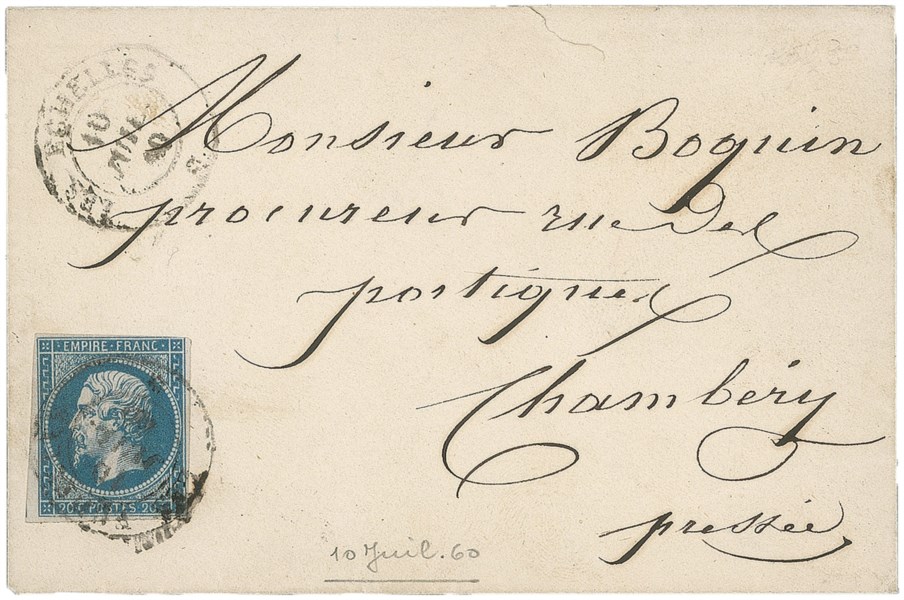 LES ECHELLES
10
JUIL
60
Monsieur Boquin
procureur rue des
portiques
Chambéry
pressée
EMPIRE · FRANC ·
20 C POSTES 20 C
10 Juil. 60